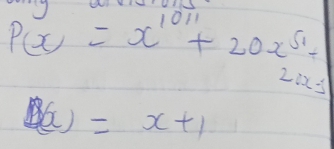 P(x) = x^1011 + 20x^51 +
20x-5
(x) = x+1